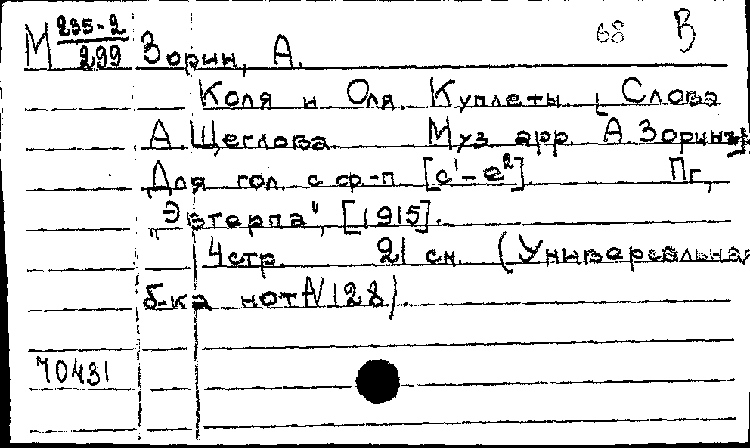 М 235-2/299 Зорин, А. 68 В
Коля и Оля. Куплеты. [Слова
А. Щеглова. Муз. арр. А. Зорина]
Для гол. с ф-п. [c¹-e²] Пг.,
„Эвтерпа", [1915].
4 стр. 21 см. (Универсальная
б-ка нот N 128).
70431